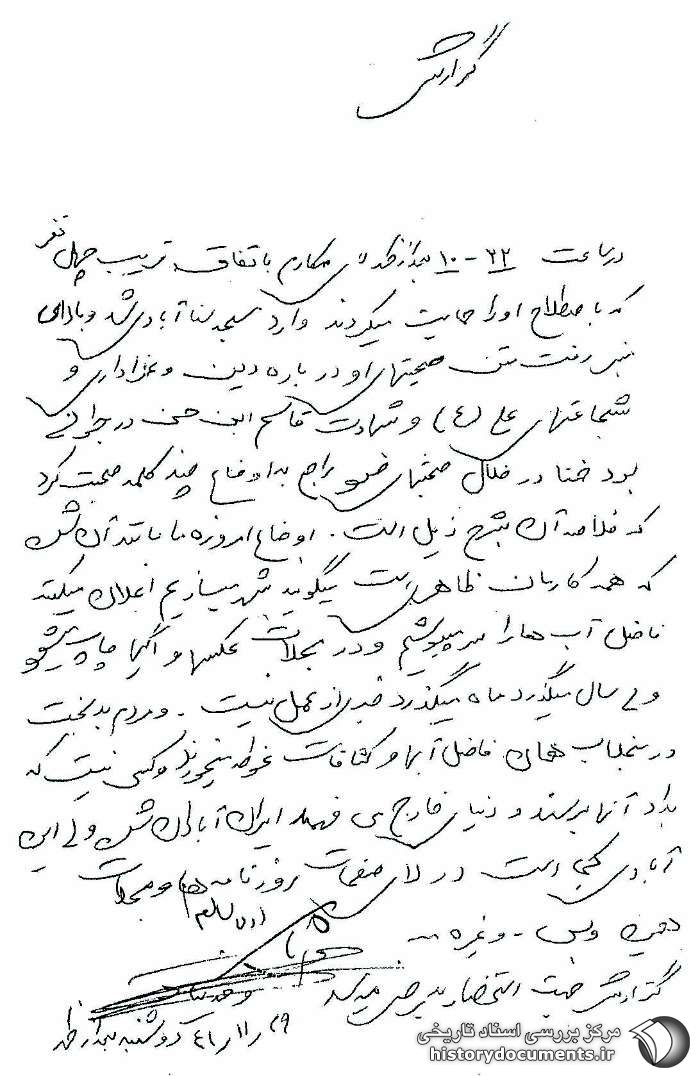 گزارش
در ساعت ۲۲ – ۱۰ بعدازظهر مکارم باتفاق قریب چهل نفر
که باصطلاح او را حمایت میکردند وارد مسجد آبادی شد و بالای
منبر رفت متن صحبتهای او درباره دین و عزاداری و
شجاعتهای علی (ع) و شهادت قاسم ابن حسن در جوانی
بود ضمنا در خلال صحبتهای خود راجع به اوضاع چند کلمه صحبت کرد
که خلاصه آن بشرح ذیل است . اوضاع امروزه ما مانند آن شی
که همه کارمان ظاهری است میگویند شهر میسازیم اعلان میکنند
فاضل آب ها را سرمیپوشیم و در مجلات عکسها و آگهیها چاپ میشود
ولی سال میگذرد ماه میگذرد خبری از عمل نیست . و مردم بدبخت
در منجلاب همان فاضل آبها و کثافات غوطه میخورند و کسی نیست که
بداد آنها برسد و دنیای خارج می فهمد ایران آبادان شد ولی این
آبادی کجا است در لای صفحات روزنامه ها و مجلات
و بس - و غیره
گزارش جهت استحضار بعرض میرسد
۲۹ ر ۱۱ ر ۴۱ دوشنبه بعدازظهر
مرکز بررسی اسناد تاریخی
historydocuments.ir